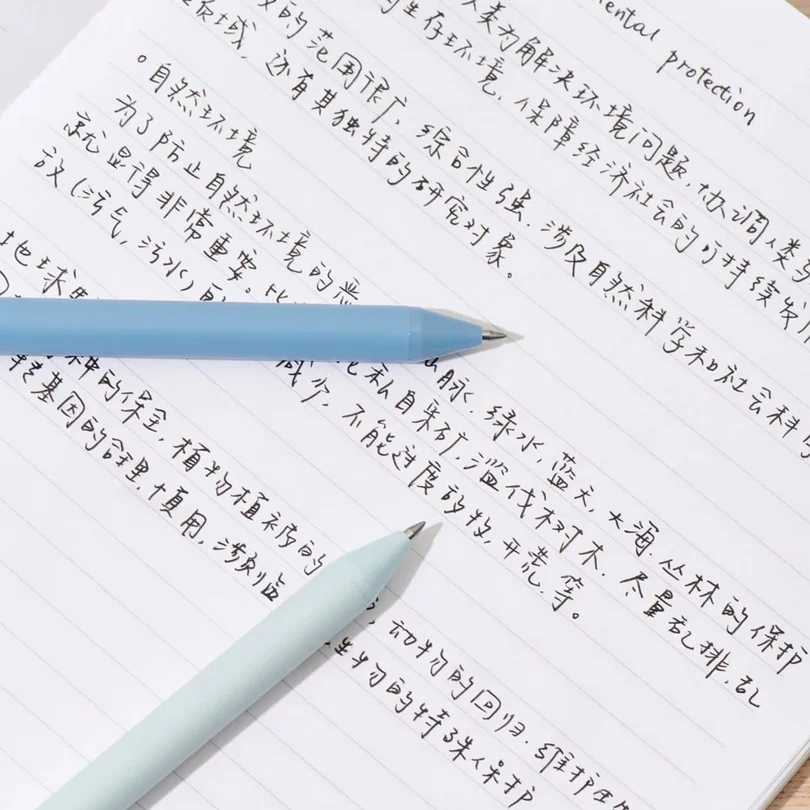 protection
人类为解决环境问题,协调人类与
的生存环境,保障经济社会的可持续发
的范围很广,综合性强.涉及自然科学和社会科学
领域,还有其独特的研究对象。
°自然环境
为了防止自然环境的恶 脉.绿水,蓝天,大海.丛林的保护
就显得非常重要。比 私自采矿,滥伐树木.尽量乱排.乱
放(污气,污水) 减少,不能过度放牧,开荒,等。
地球
种的保全,植物植被的 动物的回归.维护生
基因的合理,慎用,涉及临 生物的特殊保护